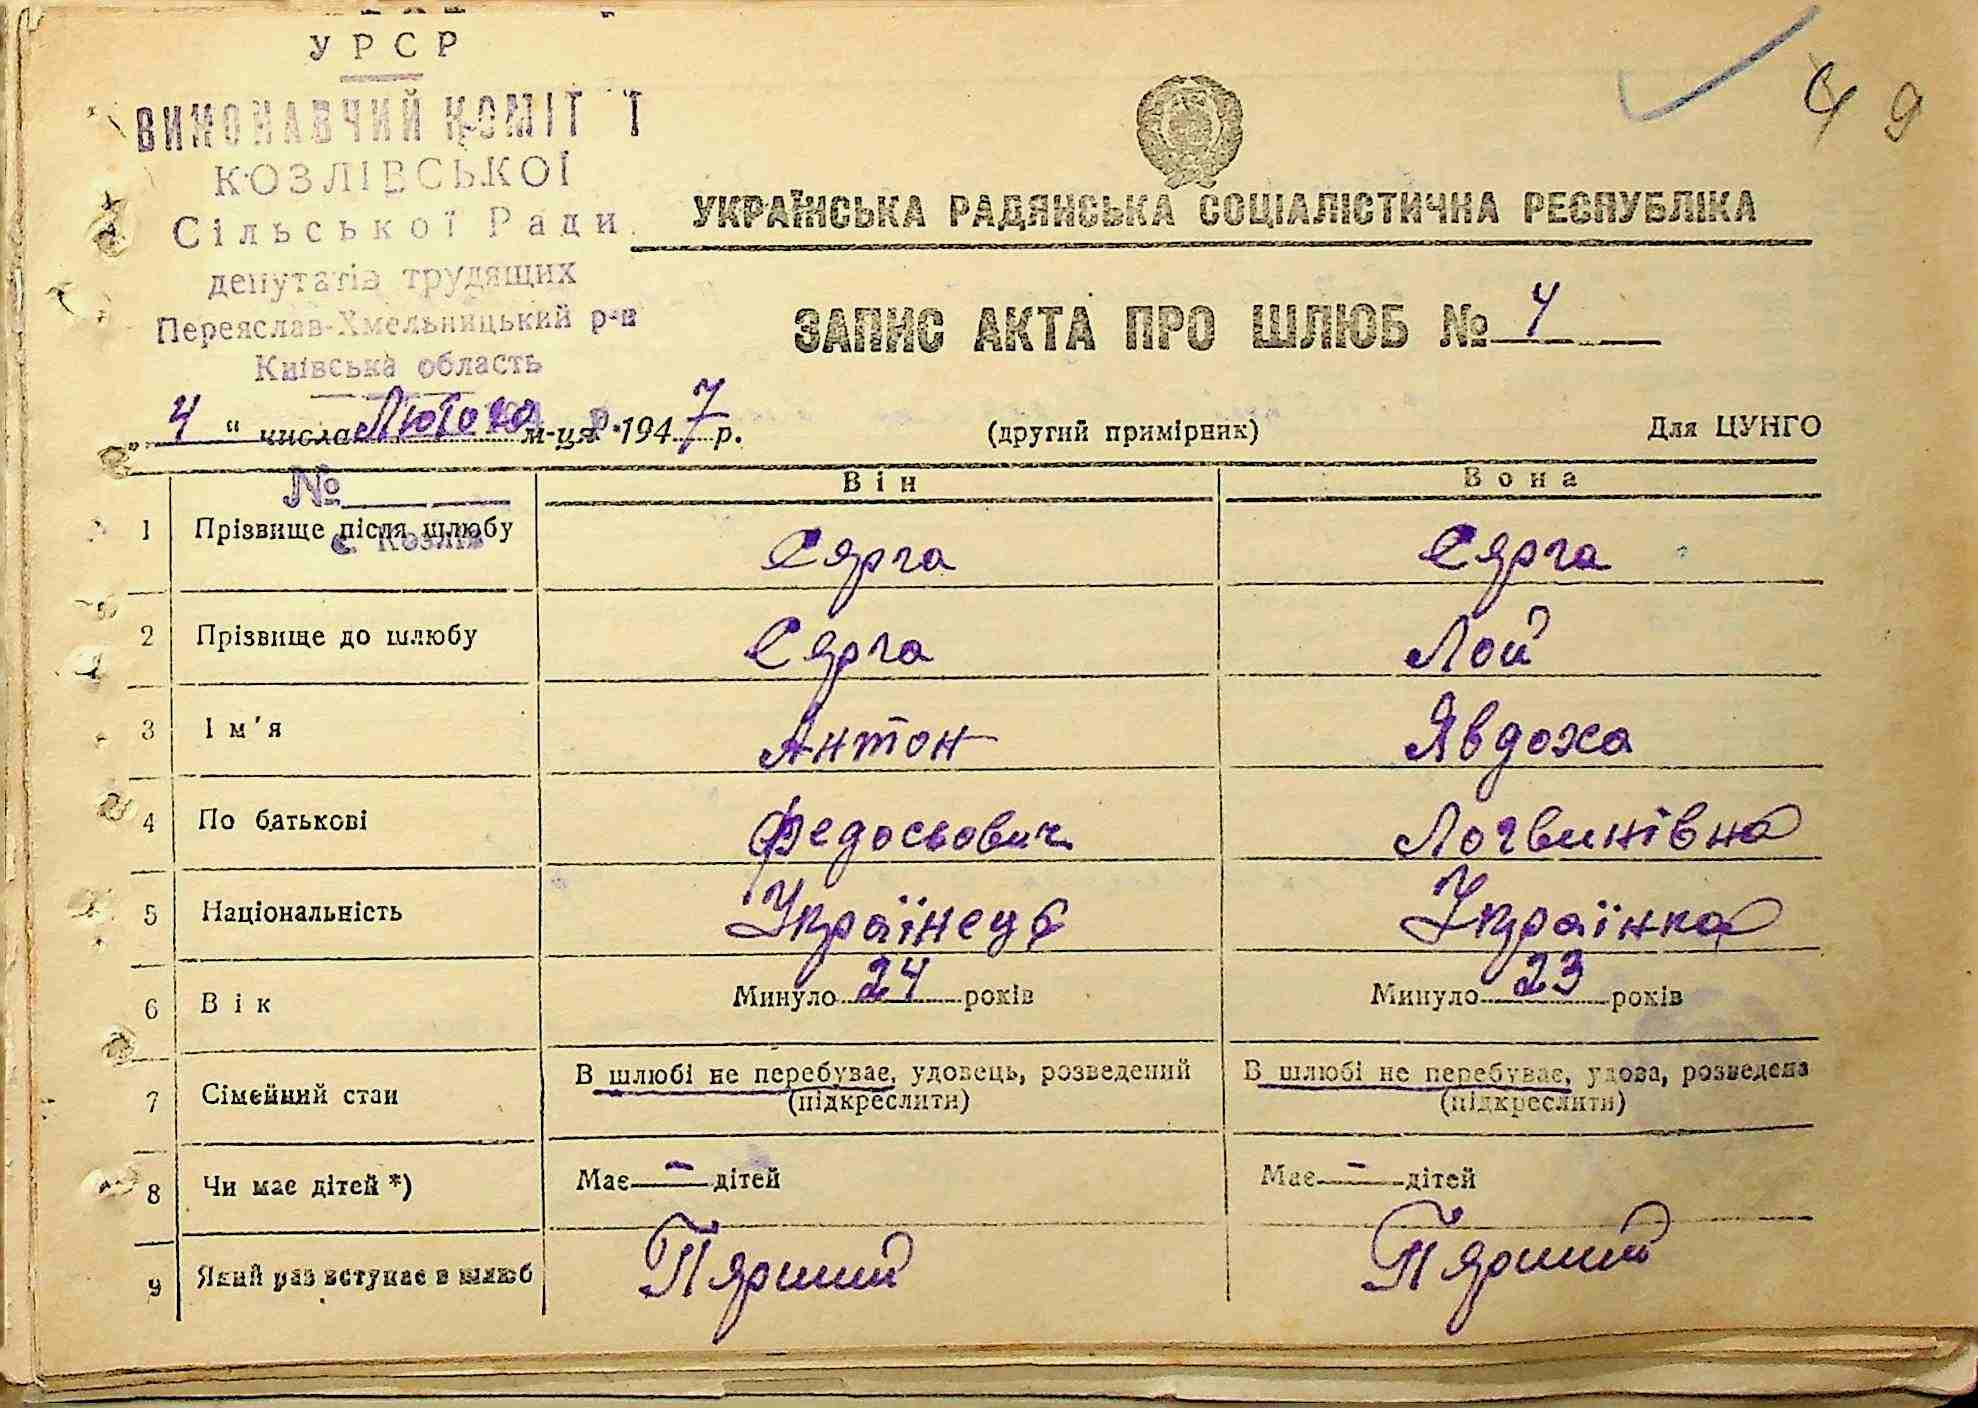 УРСР
ВИКОНАВЧИЙ КОМІТ Т
КОЗЛІВСЬКОЇ
Сільської Ради
депутатів трудящих
Переяслав-Хмельницький р-н
Київська область
49
УКРАЇНСЬКА РАДЯНСЬКА СОЦІАЛІСТИЧНА РЕСПУБЛІКА
ЗАПИС АКТА ПРО ШЛЮБ № 4
„ 4 “ числа Лютого м-ця 1947 р. (другий примірник) Для ЦУНГО
№
с. Козлів
Він Вона
1 Прізвище після шлюбу Сярга Сярга
2 Прізвище до шлюбу Сярга Лой
3 Ім'я Антон Явдоха
4 По батькові Федосьович Логвинівна
5 Національність Українець Українка
6 Вік Минуло 24 років Минуло 23 років
7 Сімейний стан В шлюбі не перебуває, удовець, розведений В шлюбі не перебуває, удова, розведена
(підкреслити) (підкреслити)
8 Чи має дітей *) Має — дітей Має — дітей
9 Який раз вступає в шлюб Пярший Пярший